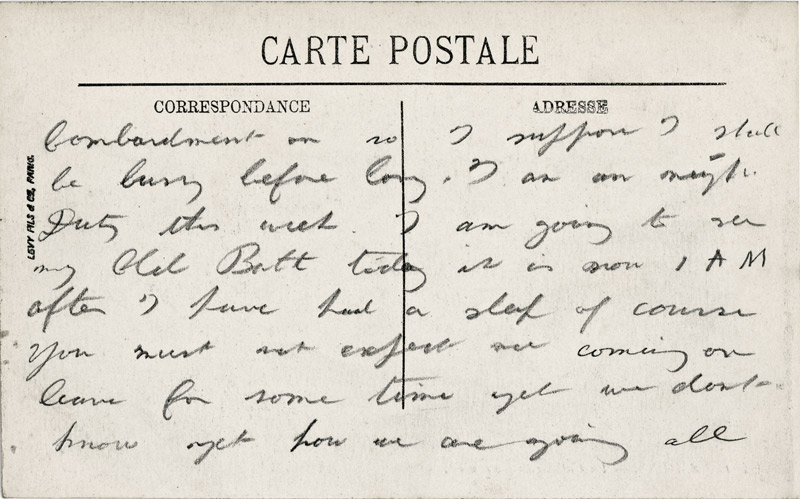 CARTE POSTALE
CORRESPONDANCE
ADRESSE
LEVY FILS & Cie, PARIS.
bombardment on so I suppose I shall
be busy before long. I am on night
Duty this week. I am going to see
my Old Batt today it is now 1 A M
after I have had a sleep of course
You must not expect me coming on
leave for some time yet we dont
know yet how we are going all